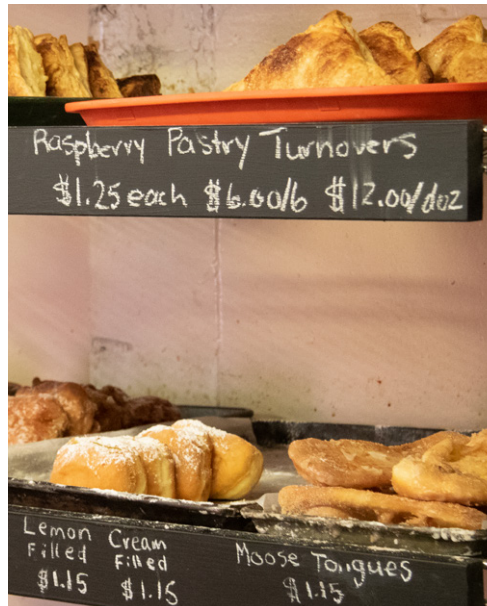 Raspberry Pastry Turnovers
$1.25 each $6.00/6 $12.00/doz
Lemon Filled $1.15
Cream Filled $1.15
Moose Tongues $1.15